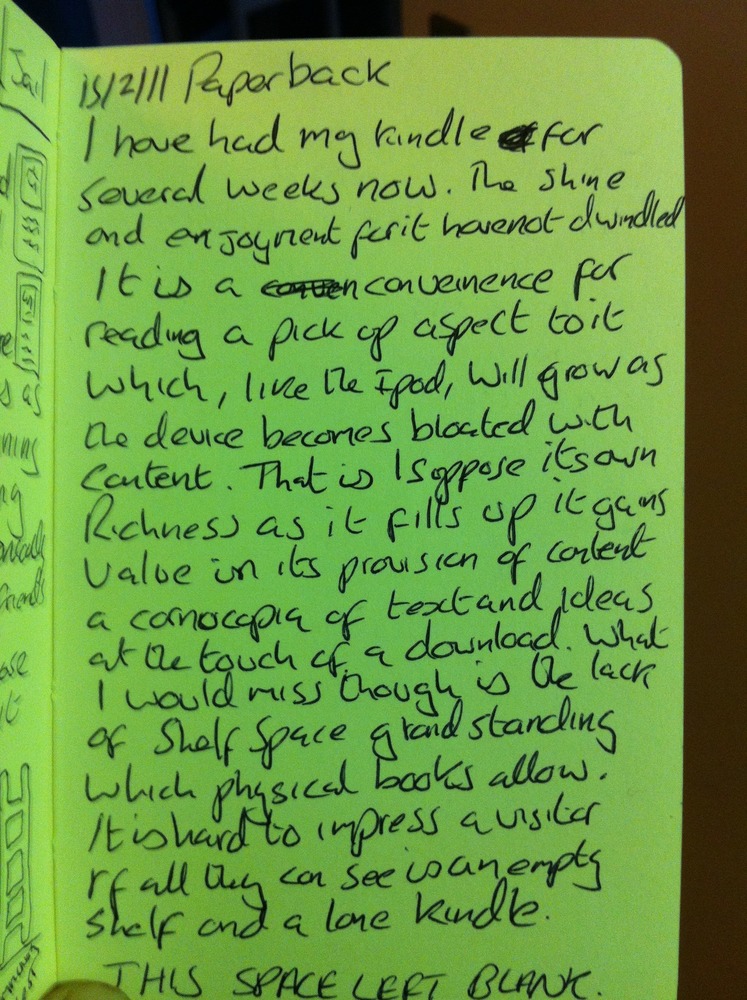 15/2/11 Paperback
I have had my kindle for
several weeks now. The shine
and enjoyment for it have not dwindled
It is a convenience for
reading a pick up aspect to it
which, like the Ipod, will grow as
the device becomes bloated with
Content. That is I soppose its own
Richness as it fills up it gains
Value in its provision of content
a cornocopia of text and Ideas
at the touch of a download. What
I would miss though is the lack
of Shelf Space grand standing
which physical books allow.
It is hard to impress a visitor
If all they can see is an empty
Shelf and a lone kindle.
THIS SPACE LEFT BLANK.